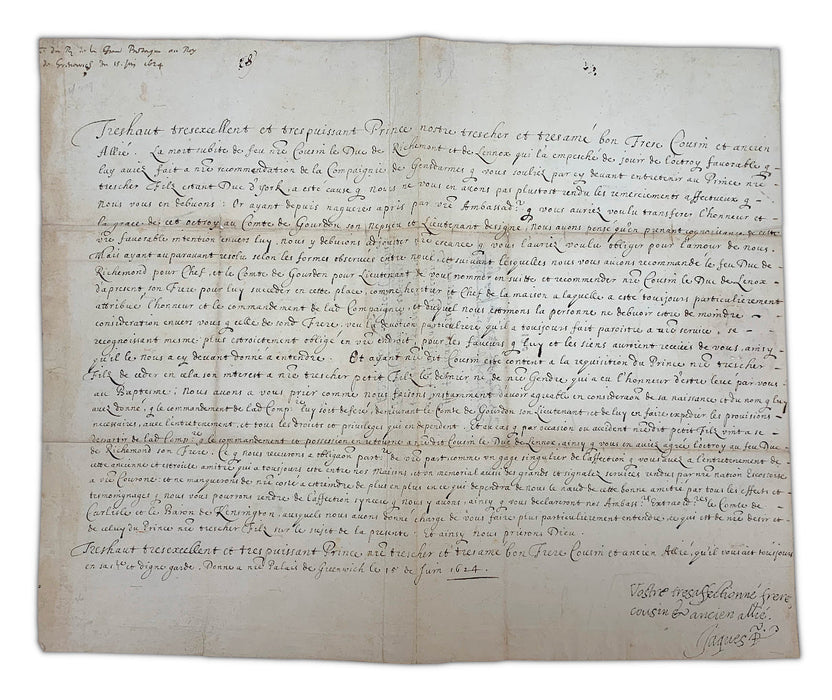 du Roy de la Grand Bretagne au Roy
de Grenewich du 15. Juin 1624
Treshaut tresexcellent et trespuissant Prince nostre trescher et tresamé bon Frere Cousin et ancien
Allié. La mort subite de feu nre Cousin le Duc de Richemont et de Lennox qui l'a empesché de jouir de l'octroy favorable q
luy aviez fait a nre recommendation de la Compaignie de Gendarmes q vous souliez par cy devant entretenir au Prince nre
trescher Filz estant Duc d'York, a esté cause q nous ne vous en avons pas plustost rendu les remerciements affectueux q
nous vous en debvions: Or ayant depuis nagueres apris par vre Ambassadr q vous auriez voulu transferer l'honneur et
la grace de cet octroy au Comte de Gourdon son nepveu et Lieutenant designé, nous avons pensé qu'en prenant cognoissance de ceste
vre favorable intention envers luy, nous y debvions adjouster creance q vous l'auriez voulu obliger pour l'amour de nous.
Mais ayant auparavant resolu selon les formes observees entre nous, et suivant lesquelles nous vous avions recommandé le feu Duc de
Richemond pour Chef, et le Comte de Gourdon pour Lieutenant de vous nommer en suitte et recommender nre Cousin le Duc de Lenox
a present son Frere pour luy succeder en cette place, comme heritier et Chef de la maison a laquelle a esté tousjours particulierement
attribué l'honneur et le commandement de lad Compaignie, et duquel nous estimons la personne ne debvoir estre de moindre
consideration envers vous q celle de sond Frere, veu la devotion particuliere qu'il a tousjours fait paroistre a vre service, se
recognoissant mesme plus estroictement obligé en vre endroit, pour les faveurs q luy et les siens auroient receues de vous, ainsy
qu'il le nous a cy devant donné a entendre. Et ayant nre dit Cousin esté content a la requisition du Prince nre trescher
Filz de ceder en cela son interest a nre trescher petit Filz le dernier né de nre Gendre, qui a eu l'honneur d'estre levé par vous
au Baptesme; Nous avons a vous prier comme nous faisons instamment d'avoir agreable en consideraon de sa naissance et du nom q luy
avez donné, q le commandement de lad Compe luy soit deferé, demeurant le Comte de Gourdon son Lieutenant et de luy en faire expedier les provisions
necessaires, avec l'entretenement, et tous les droits et privileges qui en dependent. Et au cas q par occasion ou accident nredit petit Filz vint a se
departir de lad Compe q le commandement et possession en retourne a nredit Cousin le Duc de Lennox, ainsy q vous en aviez agreé l'octroy au feu Duc
de Richemond son Frere. Ce q nous recevrons a obligaon partre de vre part comme un gage singulier de l'affection q vous avez a l'entretenement de
cette ancienne et estroitte amitié qui a tousjours esté entre nos Maisons, et en memorial aussi des grands et signalez services rendus par nre nation Escossoise
a vre Couronne: et ne manquerons de nre costé a estreindre de plus en plus en ce qui dependra de nous le nœud de cette donne amitié par tous les effects et
tesmoignages q nous vous pourrons rendre de l'affection syncere q nous y avons, ainsy q vous declareront nos Ambassrs Extraordres le Comte de
Carlisle et le Baron de Kensington, ausquels nous avons donné charge de vous faire plus particulierement entendre, ce qui est de nre desir et
de celuy du Prince nre trescher Filz sur le sujet de la presente: et ainsy nous prierons Dieu
Treshaut tresexcellent et trespuissant Prince nre trescher et tresamé bon Frere Cousin et ancien Allié, qu'il vous ait tousjours
en sa ste et digne garde. Donné a nre Palais de Greenwich le 15e de Juin 1624.
Vostre tresaffectionné frere,
cousin & ancien allié.
Jaques R